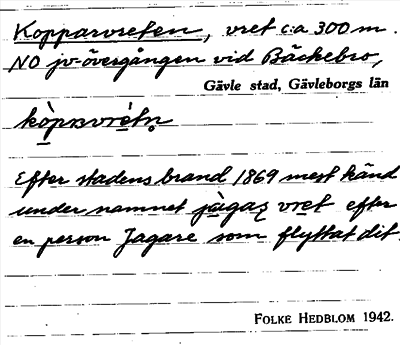 Kopparvreten, vret c:a 300 m.
NO jv-övergången vid Bäckebro,
Gävle stad, Gävleborgs län
Efter stadens brand 1869 mest känd
under namnet jàgaʒ vret efter
en person Jagare som flyttat dit.
FOLKE HEDBLOM 1942.